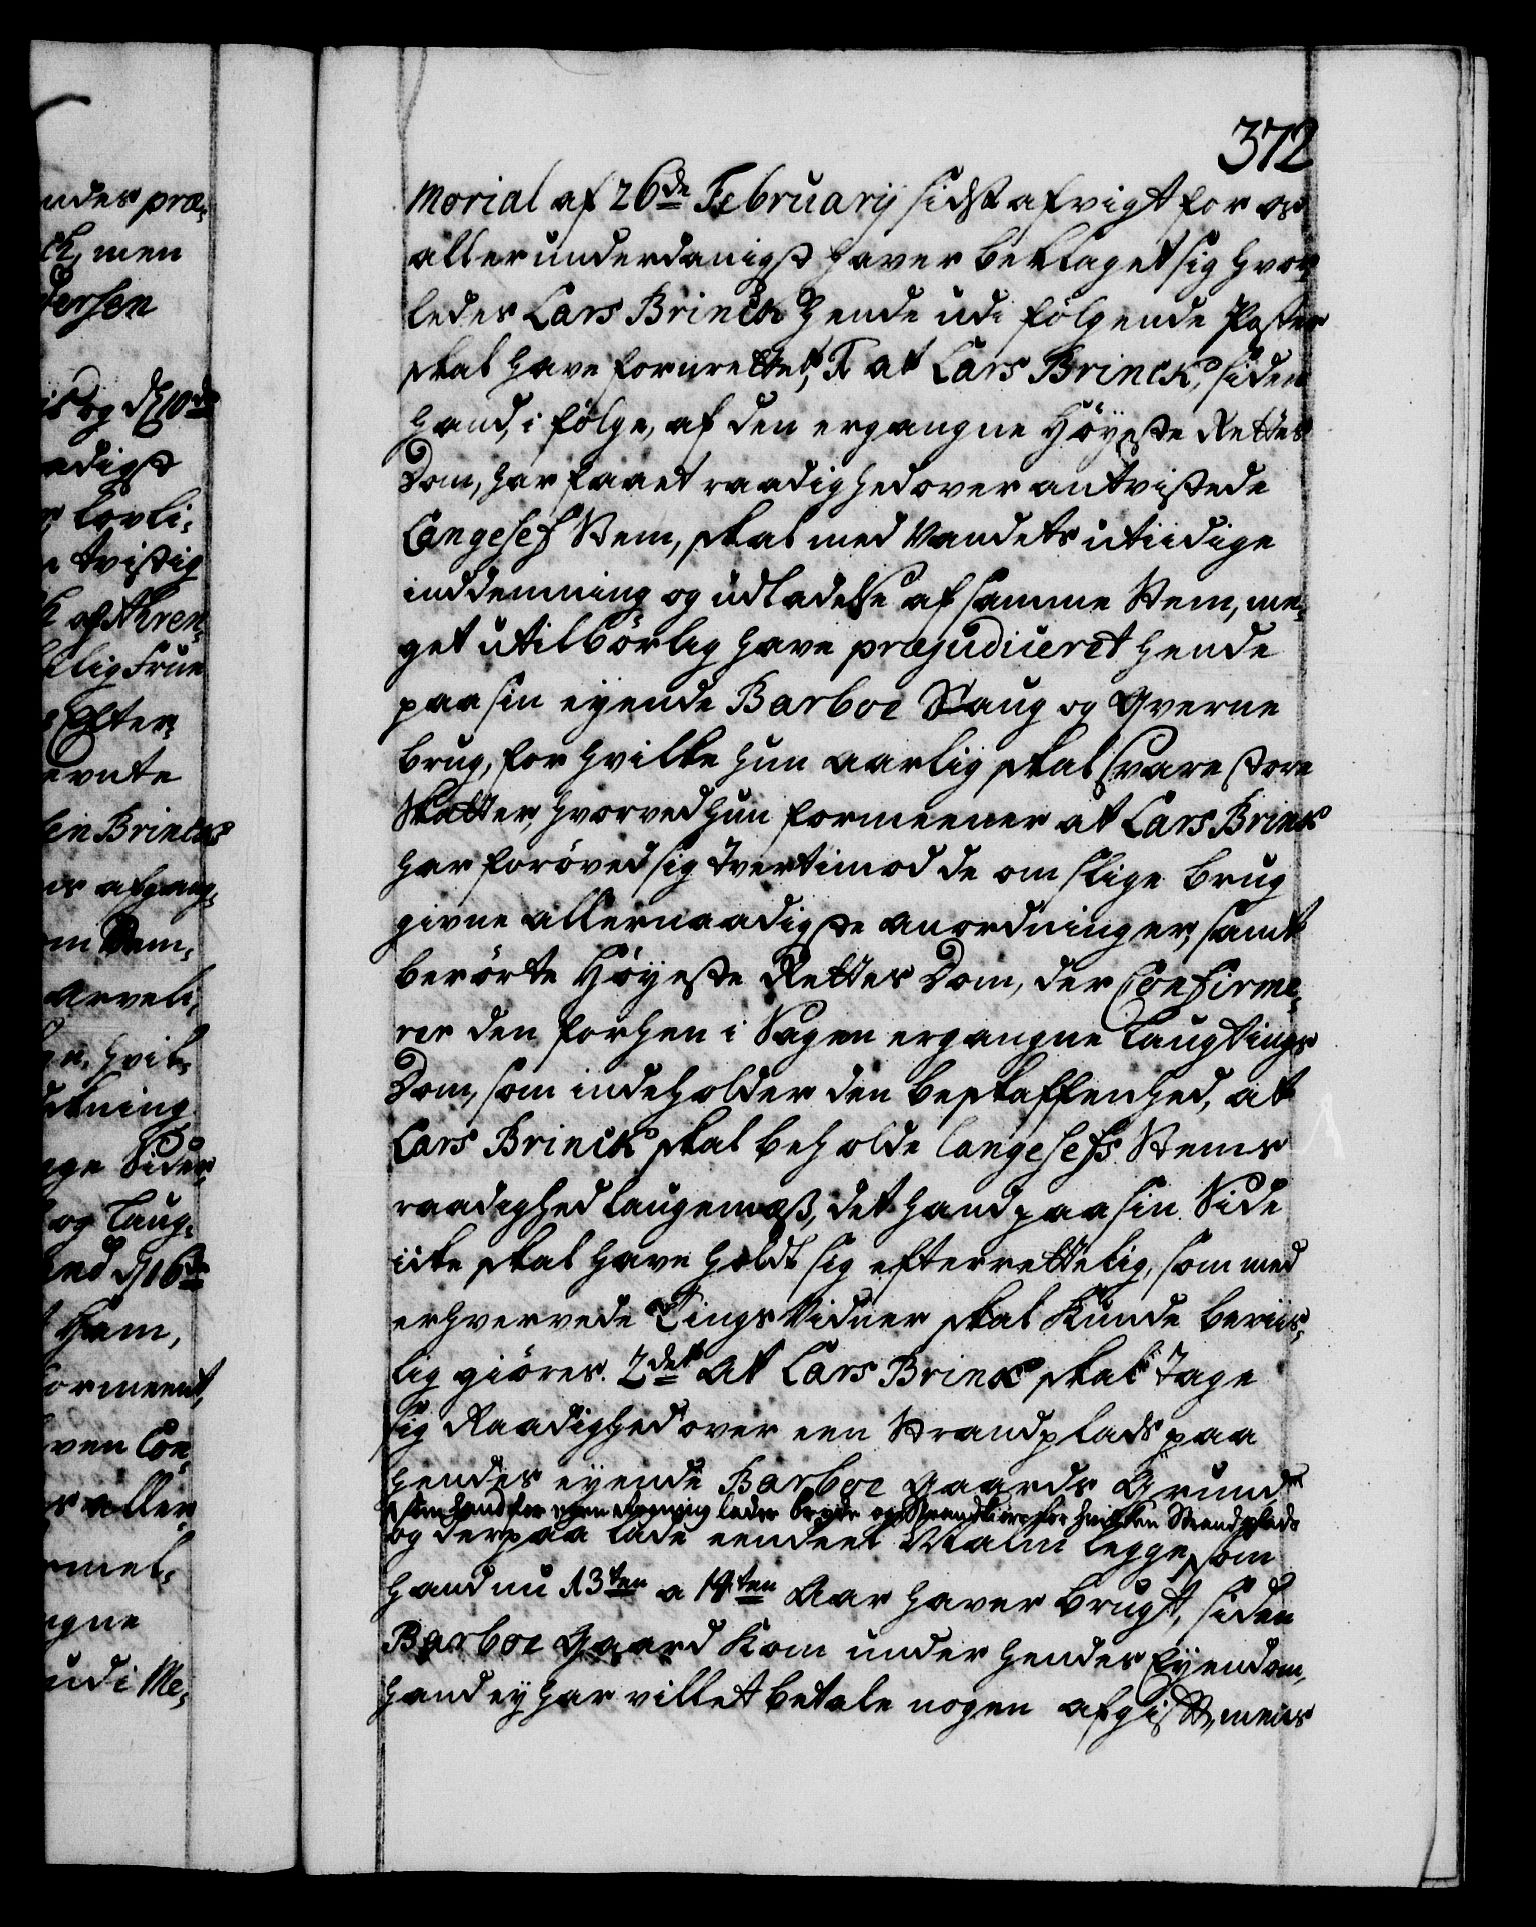 372
morial af 26de February sidst afvigt for os
allerunderdanigst haver beklaget sig hvor
ledes Lars Brinck hende udi følgende Poster
skal have fornrettet, 1 at Lars Brinck, siden
hand, i følge, af den ergangne Høyeste Rettes
Dom, har faaet raadighed over omtvistede
Langesef Stem, skal med Vandets utiidige
inddemning og udladelse af samme Stem, me,
get utilbørlig have præjudiceret hende
paa sin eyende Barboe Saug og Qverne
brug, for hvilke hun aarlig skal svare store
Skatter, hvorved hun formeener at Lars Brinck
har forøved sig tvertimod de om slige brug
givne allernaadigste anordninger, samt
berørte Høyeste Rettes Dom, der Confirme,
rer den forhen i Sagen ergangne Laugtings
Dom, som indeholder den beskaffenhed, at
Lars Brinck skal beholde Langesefs Stems
raadighed laugemæs, det hand paa sin Side
icke skal have holdt sig efterrettelig, som med
erhvervede Tings Vidner skal kunde beviis,
lig giøres. 2det At Lars Brinck skal tage
sig Raadighed over een Strandplads paa
hendes eyende Barboe Gaards Grund
som hand for egen Regning lader bryde og for hvilken Strandplads
og derpaa lade eendeel Malm legge, som
hand nu 13ten a 14ten Aar haver brugt, siden
Barboe Gaard kom under hendes Eyendom,
hand ey har villet betale nogen afgift, meens
ndes præ,
ck, men
dersen
og d 10de
adigst
lovli,
tvistig
af Aren,
lig Frue
efter,
evnte
en Brincks
es afgang,
m Stem,
arveli,
hvil,
kning
ge Sider,
og Laug,
end d 16de
Ham,
ormeent,
ven Con,
aller
mel,
gne
udi Me,